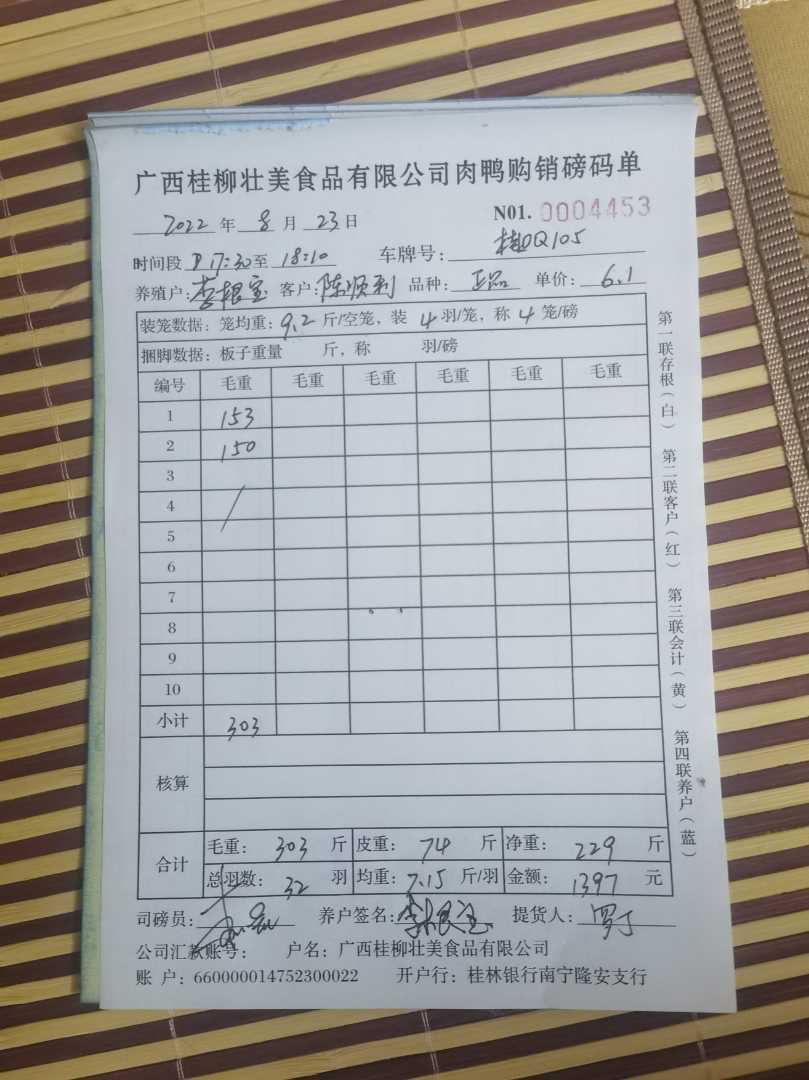 广西桂柳壮美食品有限公司肉鸭购销磅码单
2022 年 8 月 23 日 N01. 0004453
时间段 P 17:30 至 18:10 车牌号: Q105
养殖户: 李根宝 客户: 陈顺利 品种: 正品 单价: 6.1
装笼数据: 笼均重: 9.2 斤/空笼, 装 4 羽/笼, 称 4 笼/磅
捆脚数据: 板子重量 斤, 称 羽/磅
编号 毛重 毛重 毛重 毛重 毛重 毛重
1 153
2 150
3
4 /
5
6
7
8
9
10
小计 303
核算
合计 毛重: 303 斤 皮重: 74 斤 净重: 229 斤
总羽数: 32 羽 均重: 7.15 斤/羽 金额: 1397 元
司磅员: 养户签名: 李根宝 提货人: 罗丁
公司汇款账号: 户名: 广西桂柳壮美食品有限公司
账 户: 660000014752300022 开户行: 桂林银行南宁隆安支行
第一联存根(白) 第二联客户(红) 第三联会计(黄) 第四联养户(蓝)